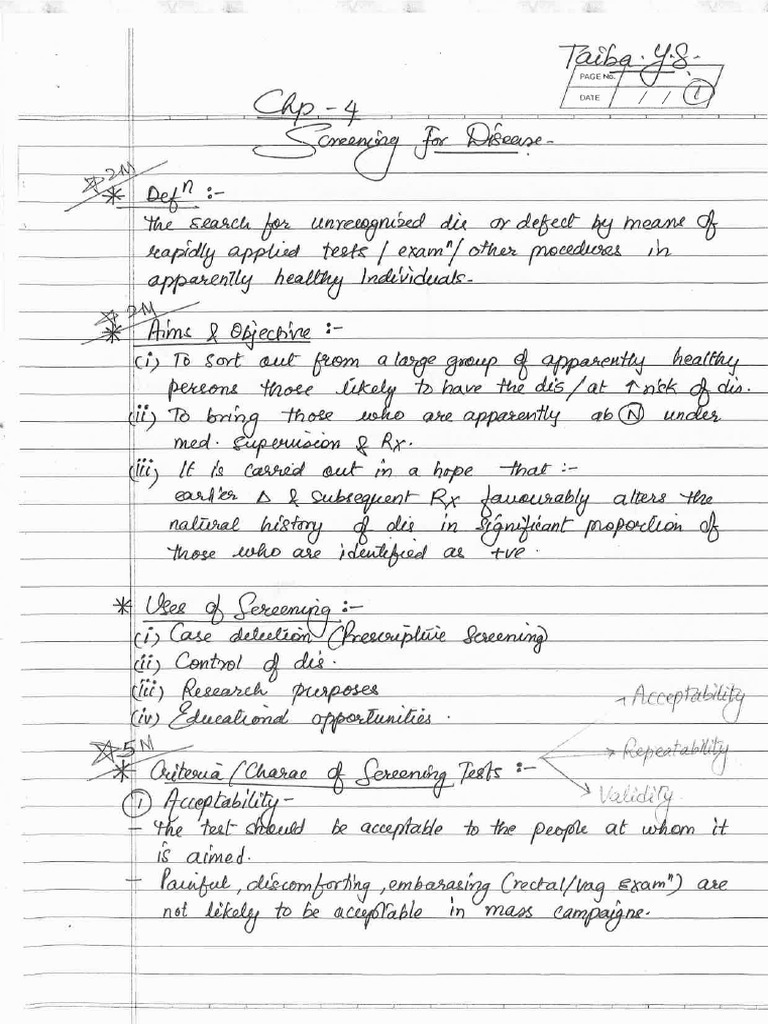 Taiba. Y.S.
PAGE No.
DATE / / 1
Chp - 4
Screening for Disease.
2M
* Defⁿ :-
The search for unrecognized dis or defect by means of
rapidly applied tests / examⁿ / other procedures in
apparently healthy Individuals.
2M
* Aims & Objective :-
(i) To sort out from a large group of apparently healthy
persons those likely to have the dis / at ↑ risk of dis.
(ii) To bring those who are apparently ab Ⓝ under
med. supervision & Rx.
(iii) It is carried out in a hope that :-
earlier Δ & subsequent Rx favourably alters the
natural history of dis in significant proportion of
those who are identified as +ve.
* Uses of Screening :-
(i) Case detection (Prescriptive Screening)
(ii) Control of dis.
(iii) Research purposes
(iv) Educational opportunities.
5M
* Criteria / Charac of Screening Tests :-
→ Acceptability
→ Repeatability
→ Validity
① Acceptability -
- The test should be acceptable to the people at whom it
is aimed.
- Painful, discomforting, embarasing (rectal/vag Examⁿ) are
not likely to be acceptable in mass campaigne.